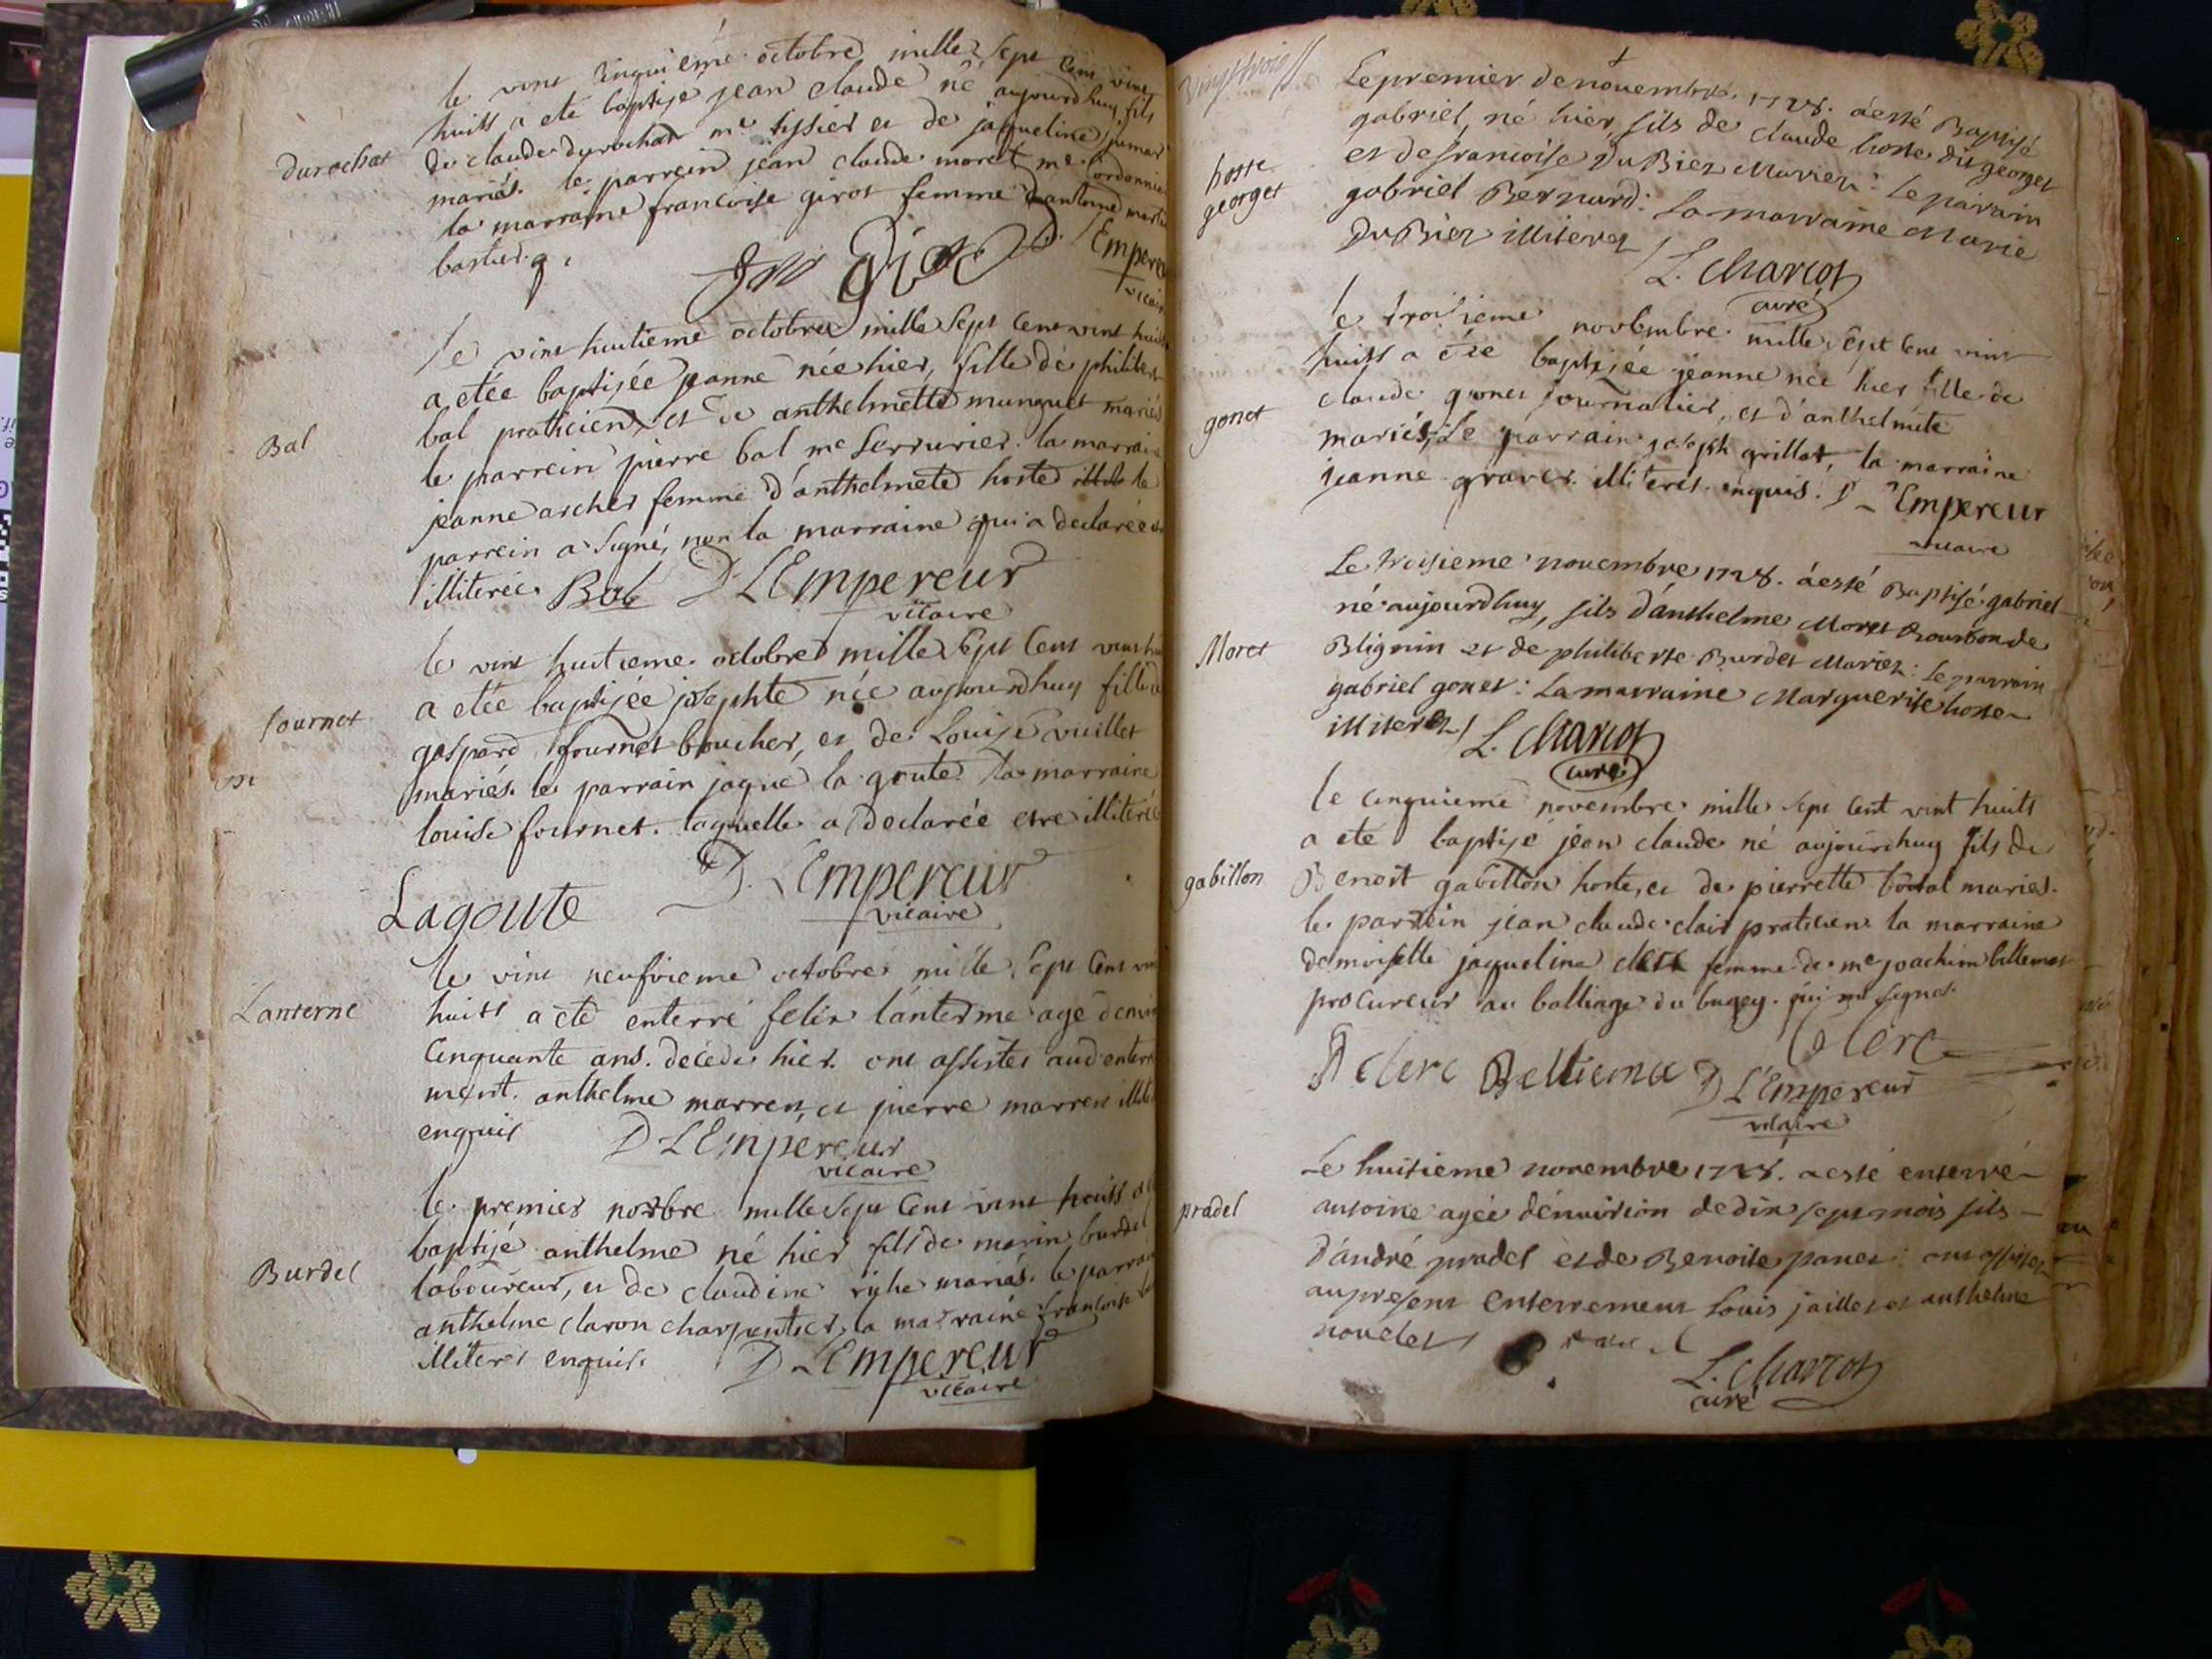 le vint cinquiéme octobre mille sept cent vint
huitt a eté baptisé jean claude né aujourdhuy, fils
durochat
de claude durochat me tissier et de jaqueline jumar
mariés. le parrein jean claude moret me cordonnier
la marraine francoise girot femme d'antoine
bastier
D. L'Empereur
vicaire
le vint huitieme octobre mille sept cent vint huitt
a etée baptisée jeanne née hier, fille de philibert
Bal
bal praticien et de anthelmette munguet mariés
le parrein pierre bal me serrurier. la marraine
jeanne archer femme d'anthelmete hoste le
parrein a signé, non la marraine qui a declarée
illiterée. Bal D. L'Empereur
vicaire
le vint huitieme octobre mille sept cent vint
a etée baptisée josephte née aujourdhuy fille de
fournet
gaspard fournet boucher, et de Louise vuillet
mariés. le parrain jaque la goute la marraine
louise fournet. laquelle a declarée etre illiterée
D. L'Empereur
vicaire
Lagoute
le vint neufvieme octobre mille sept cent vint
Lanterne
huitt a eté enterré felix lanterme agé d'environ
cinquante ans. décédé hier. ont assistés aud. enterre
ment. anthelme marren, et pierre marren
enquis D L'Empereur
vicaire
le premier novbre mille sept cent vint huitt
baptisé anthelme né hier fils de marin burdel
Burdel
laboureur, et de claudine mariés. le parrain
anthelme claron charpentier, la marraine francoise
illiterés enquis. D L'Empereur
vicaire
vingt trois
Le premier de nouembre. 1728. a esté Baptisé
gabriel, né hier, fils de claude hoste dit georget
hoste
georget
et de francoise Du Bier Mariez: Le parain
gabriel Bernard: La marraine Marie
Du Bier illiterez / L. Charcot
curé
le troisieme novembre mille sept cent vint
huitt a été baptisée jeanne née hier fille de
gonet
claude gonet journalier, et d'anthelmete
mariés, Le parrain joseph grillot, la marraine
jeanne graver illiterés enquis. D L'Empereur
vicaire
Le troisieme nouembre 1728. a esté Baptisé gabriel
né aujourdhuy, fils d'anthelme Moret de
Moret
Blignin et de philiberte Burdet Mariez: Le parrain
gabriel gonet: La marraine Marguerite hoste
illiterez / L. Charcot
curé
le cinquieme novembre mille sept cent vint huitt
a eté baptisé jean claude né aujourdhuy fils de
gabillon
Benoit gabillon hoste, et de pierrette bottal mariés.
le parrein jean claude clair praticien la marraine
demoiselle jaqueline clerc femme de me joachim billemaz
procureur au balliage du bugey. qui ont signé.
clerc Belliema Clerc
D L'Empereur
vicaire
Le huitieme nouembre 1728. a esté enterré
pradel
antoine agée dénuirion de dix sept mois fils
d'andré pradel et de Benoite panet: ont assistez
au present enterrement Louis jaillet et anthelme
nouelet
L. Charcot
curé